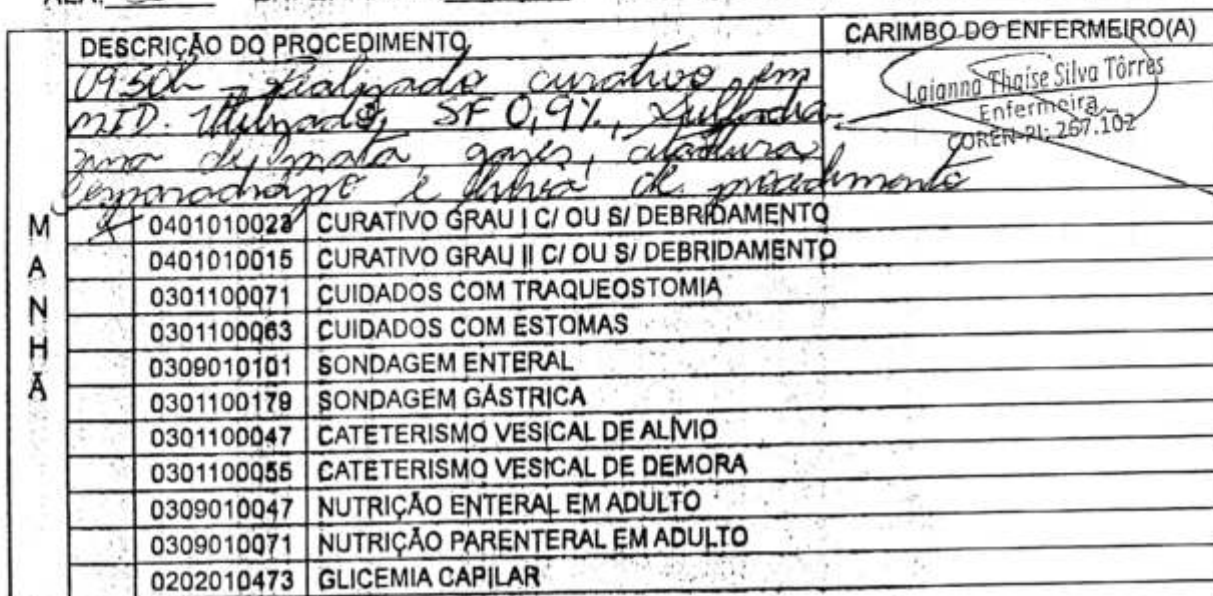 DESCRIÇÃO DO PROCEDIMENTO
CARIMBO DO ENFERMEIRO(A)
0950h - Realizado curativo em
MID. Utilizado, SF 0,9%, Sulfadia-
zina de prata, gazes, atadura,
esparadrapo e luva de procedimento
Laianna Thaíse Silva Tôrres
Enfermeira
COREN-PI: 267.102
MANHÃ
0401010023 CURATIVO GRAU I C/ OU S/ DEBRIDAMENTO
0401010015 CURATIVO GRAU II C/ OU S/ DEBRIDAMENTO
0301100071 CUIDADOS COM TRAQUEOSTOMIA
0301100063 CUIDADOS COM ESTOMAS
0309010101 SONDAGEM ENTERAL
0301100179 SONDAGEM GÁSTRICA
0301100047 CATETERISMO VESICAL DE ALÍVIO
0301100055 CATETERISMO VESICAL DE DEMORA
0309010047 NUTRIÇÃO ENTERAL EM ADULTO
0309010071 NUTRIÇÃO PARENTERAL EM ADULTO
0202010473 GLICEMIA CAPILAR